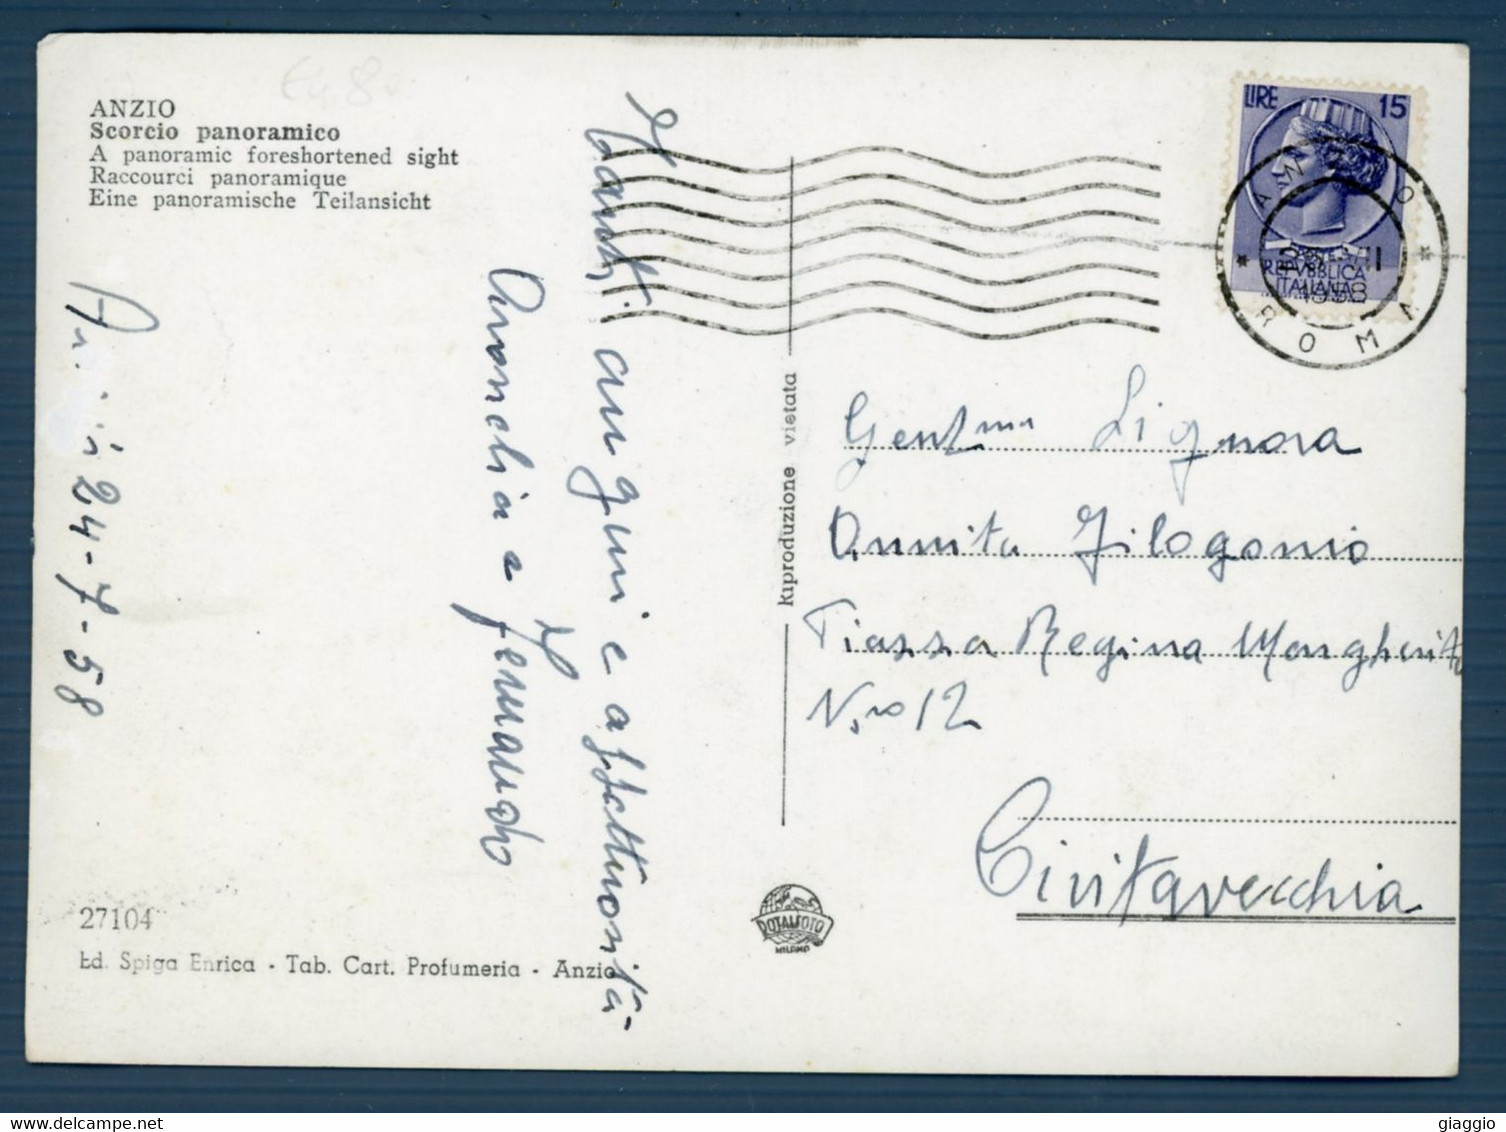 ANZIO
Scorcio panoramico
A panoramic foreshortened sight
Raccourci panoramique
Eine panoramische Teilansicht
24-7-58
auguri e affettuosità
e Fernando
27104
Ed. Spiga Enrica - Tab. Cart. Profumeria - Anzio
Riproduzione vietata
ROTALFOTO
MILANO
LIRE 15
POSTE
REPVBBLICA
ITALIANA
ANZIO
1958
ROMA
Gent.ma Signora
Annita Filogonio
Piazza Regina Margherita
N.ro 12
Civitavecchia
giaggio